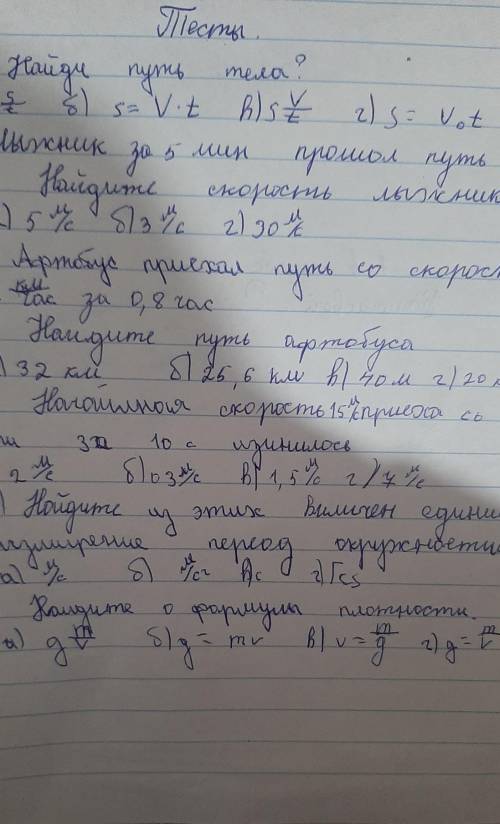 Тесты.
Найди путь тела?
s/t б) s = V·t в) s V/t г) s = V₀t
лыжник за 5 мин прошол путь
Найдите скорость лыжник
) 5 м/с б) 3 м/с г) 30 м/с
Артобус приехал путь со скорост
км/час за 0,8 час
Наидите путь афтобуса
) 32 км б) 25,6 км в) 40 м г) 20 к
скорость 15 м/с со
за 10 с изинилось
2 м/с б) 0 3 м/с в) 1,5 м/с г) 7 м/с
) Нойдите из этих виличен едини
измирение период
а) м/с б) м/с² в) с г)
Наидите о формулы плотности.
а) g m/v б) g = mv в) v = m/g г) g = m/v